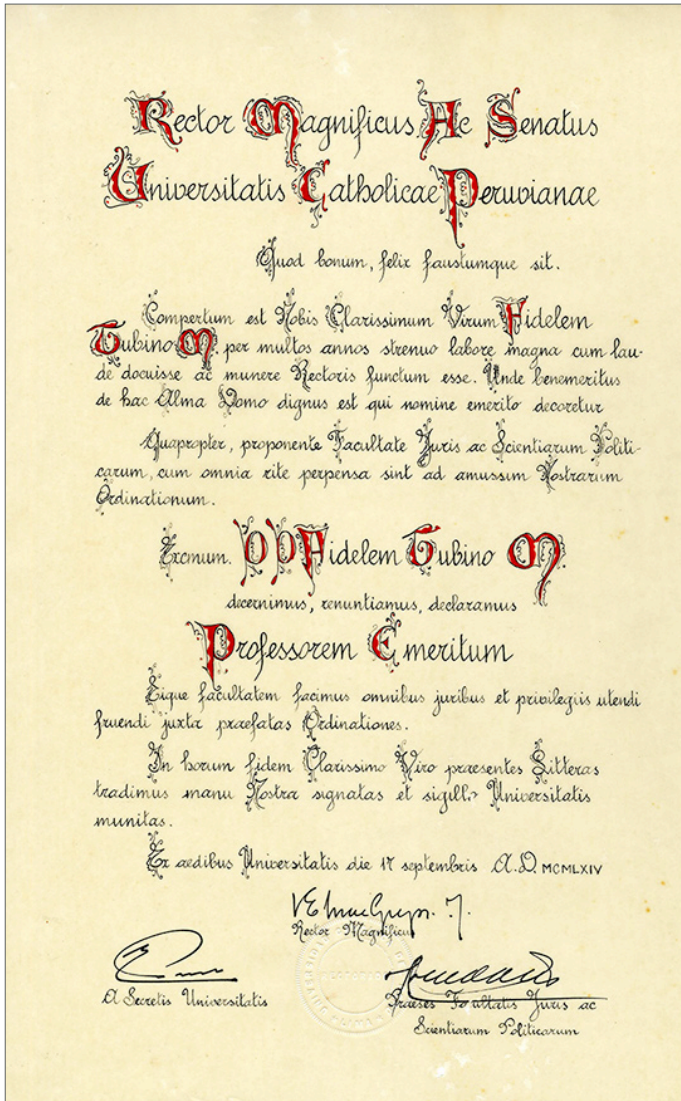 Rector Magnificus Ac Senatus
Universitatis Catholicae Peruvianae
Quod bonum, felix faustumque sit.
Compertum est Nobis Clarissimum Virum Fidelem
Tubino M. per multos annos strenuo labore magna cum lau-
de docuisse ac munere Rectoris functum esse. Unde benemeritus
de hac Alma Domo dignus est qui nomine emerito decoretur
Quapropter, proponente Facultate Juris ac Scientiarum Politi-
carum, cum omnia rite perpensa sint ad amussim Nostrarum
Ordinationum.
Excmum. D D Fidelem Tubino M
decernimus, renuntiamus, declaramus
Professorem Emeritum
Eique facultatem facimus omnibus juribus et privilegiis utendi
fruendi juxta praefatas Ordinationes.
In horum fidem Clarissimo Viro praesentes Litteras
tradimus manu Nostra signatas et sigillo Universitatis
munitas.
Ex aedibus Universitatis die 17 septembris A.D. MCMLXIV
Rector Magnificus
A Secretis Universitatis
Praeses Facultatis Juris ac
Scientiarum Politicarum